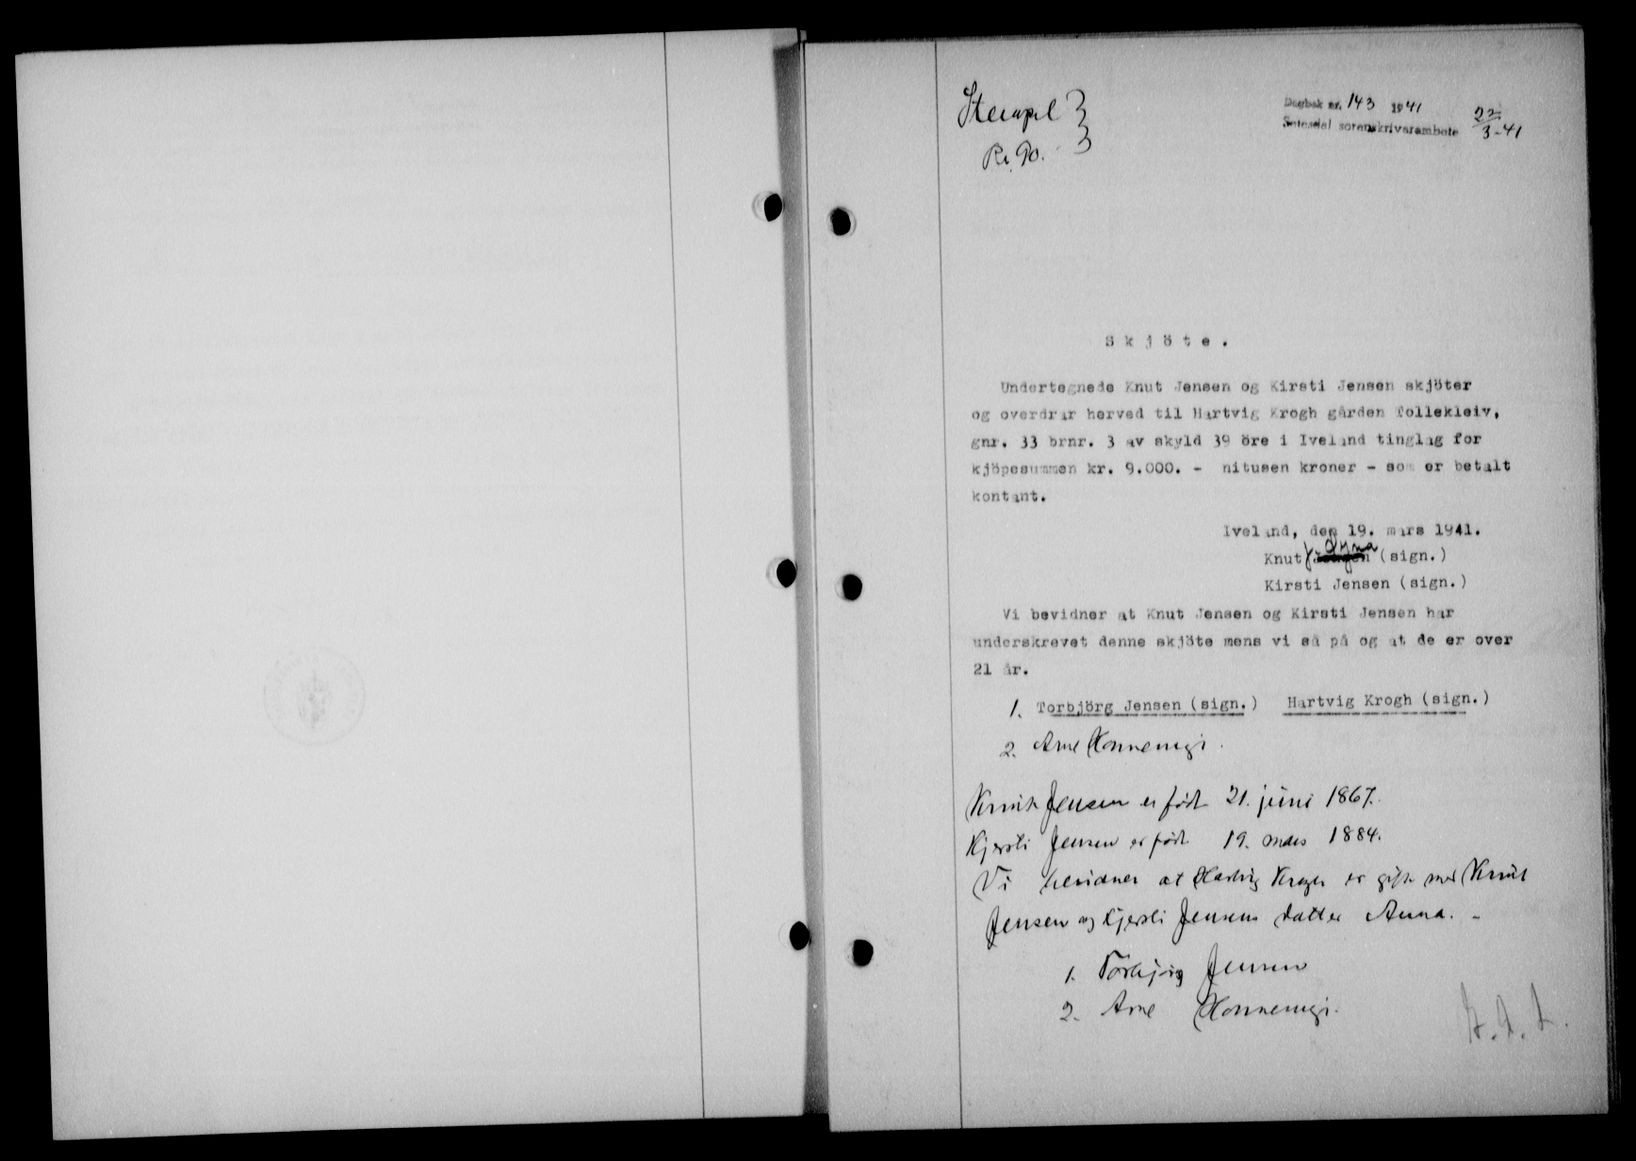 Stempel
Kr. 90.
Dagbok nr. 143 1941
Setesdal sorenskrivarembete 22/3-41
Skjöte.
Undertegnede Knut Jensen og Kirsti Jensen skjöter
og overdrar herved til Hartvig Krogh gården Tollekleiv,
gnr. 33 brnr. 3 av skyld 39 öre i Iveland tinglag for
kjöpesummen kr. 9.000. - nitusen kroner - som er betalt
kontant.
Iveland, den 19. mars 1941.
Knut (sign.)
Kirsti Jensen (sign.)
Vi bevidner at Knut Jensen og Kirsti Jensen har
underskrevet denne skjöte mens vi så på og at de er over
21 år.
1. Torbjörg Jensen (sign.) Hartvig Krogh (sign.)
2. Arne
Knut Jensen er født 21. juni 1867.
Kjersti Jensen er født 19. mars 1884.
Vi bevidner at Hartvig Krogh er gift med Knut
Jensen og Kjersti Jensens datter Anna. -
1. Torbjørg Jensen
2. Arne